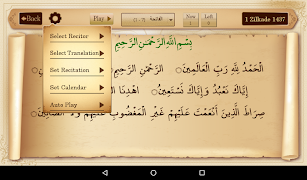 Back
Play
الفاتحة
New
1
Left
0
1 Zilkade 1437
Select Recitor
Select Translation
Set Recitation
Set Calendar
Auto Play
بِسْمِ اللَّهِ الرَّحْمَٰنِ الرَّحِيمِ
الْحَمْدُ لِلَّهِ رَبِّ الْعَالَمِينَ الرَّحْمَٰنِ الرَّحِيمِ
إِيَّاكَ نَعْبُدُ وَإِيَّاكَ نَسْتَعِينُ اهْدِنَا
صِرَاطَ الَّذِينَ أَنْعَمْتَ عَلَيْهِمْ غَيْرِ الْمَغْضُوبِ عَلَيْهِمْ وَلَا